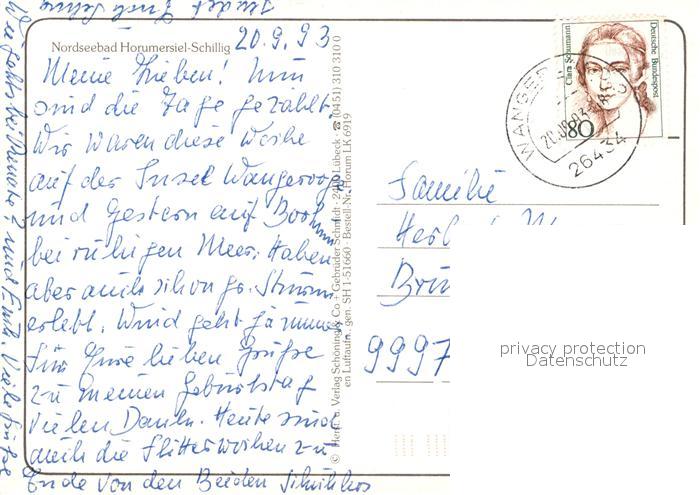 Nordseebad Horumersiel-Schillig
20.9.93
Meine Lieben! Nun
sind die Tage gezählt.
Wir waren diese Woche
auf der Insel Wangerooge
und Gestern auf
bei ruhigem Meer. Haben
aber auch schon gr. Sturm
erlebt. Wind geht ja immer
Für Eure lieben Grüße
zu meinem Geburtstag
vielen Dank. Heute sind
auch die Flitterwochen zu
Ende von den Beiden
Wie gehts bei
und Euch. Viele Grüße
© Herst. u. Verlag Schöning & Co + Gebrüder Schmidt · 2400 Lübeck ☎ (0451) 310 310 0
en Luftaufn., gen. SH 1-51660 · Bestell-Nr. Horum LK 6919
Clara Schumann
Deutsche Bundespost
80
26434
Familie
9997
privacy protection
Datenschutz